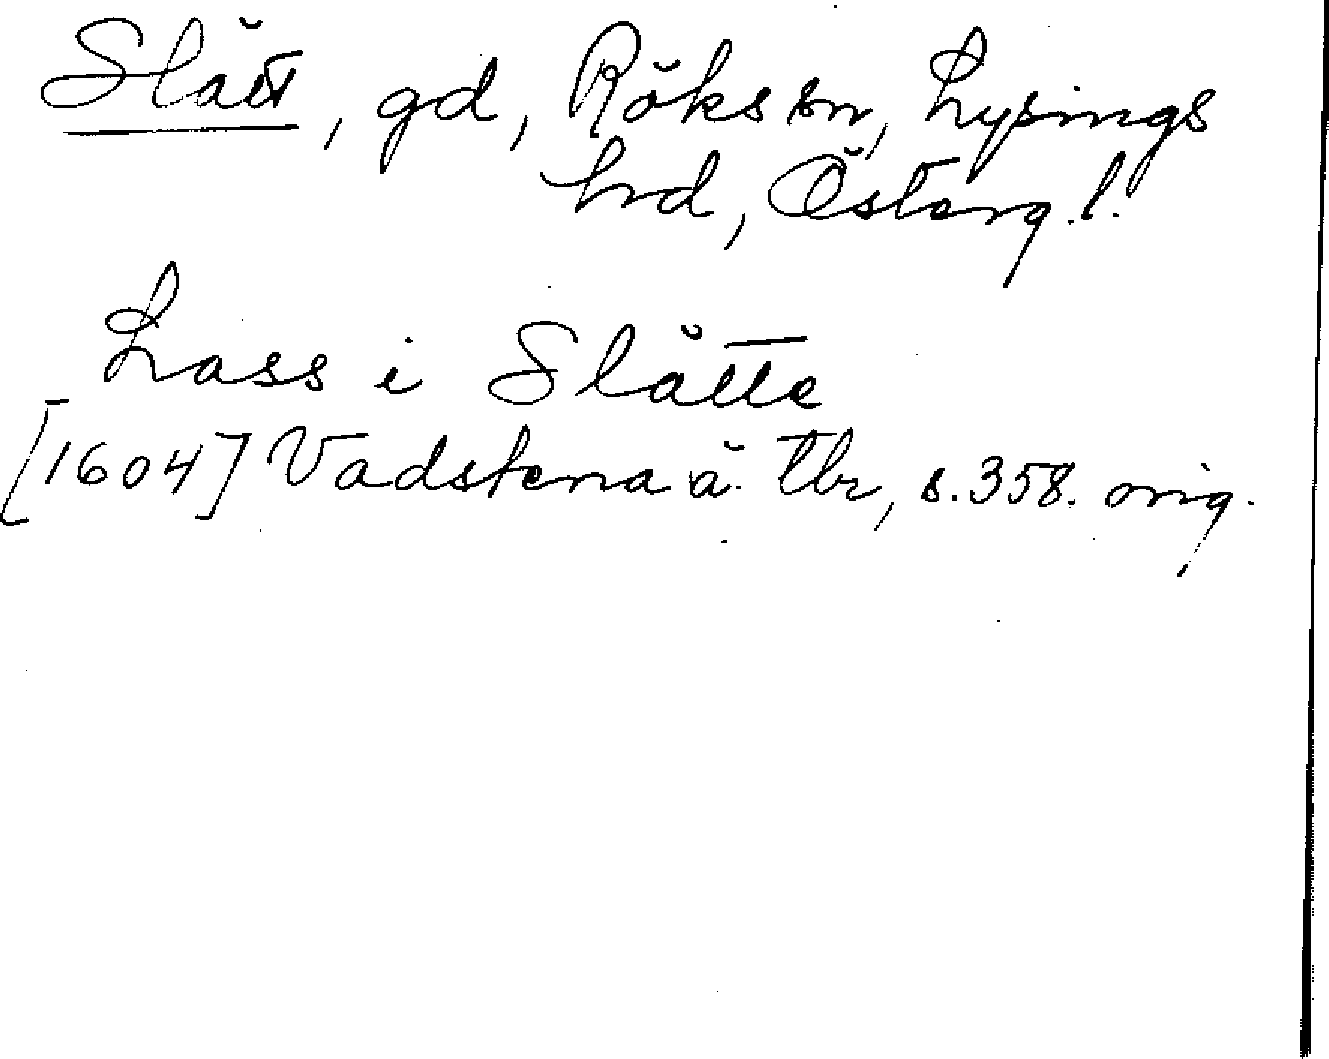 Slätt, gd, Röks sn, Lysings
hrd, Österg.l.
Lass i Slätte
[1604] Vadstena ä. tbr, s. 358. orig.